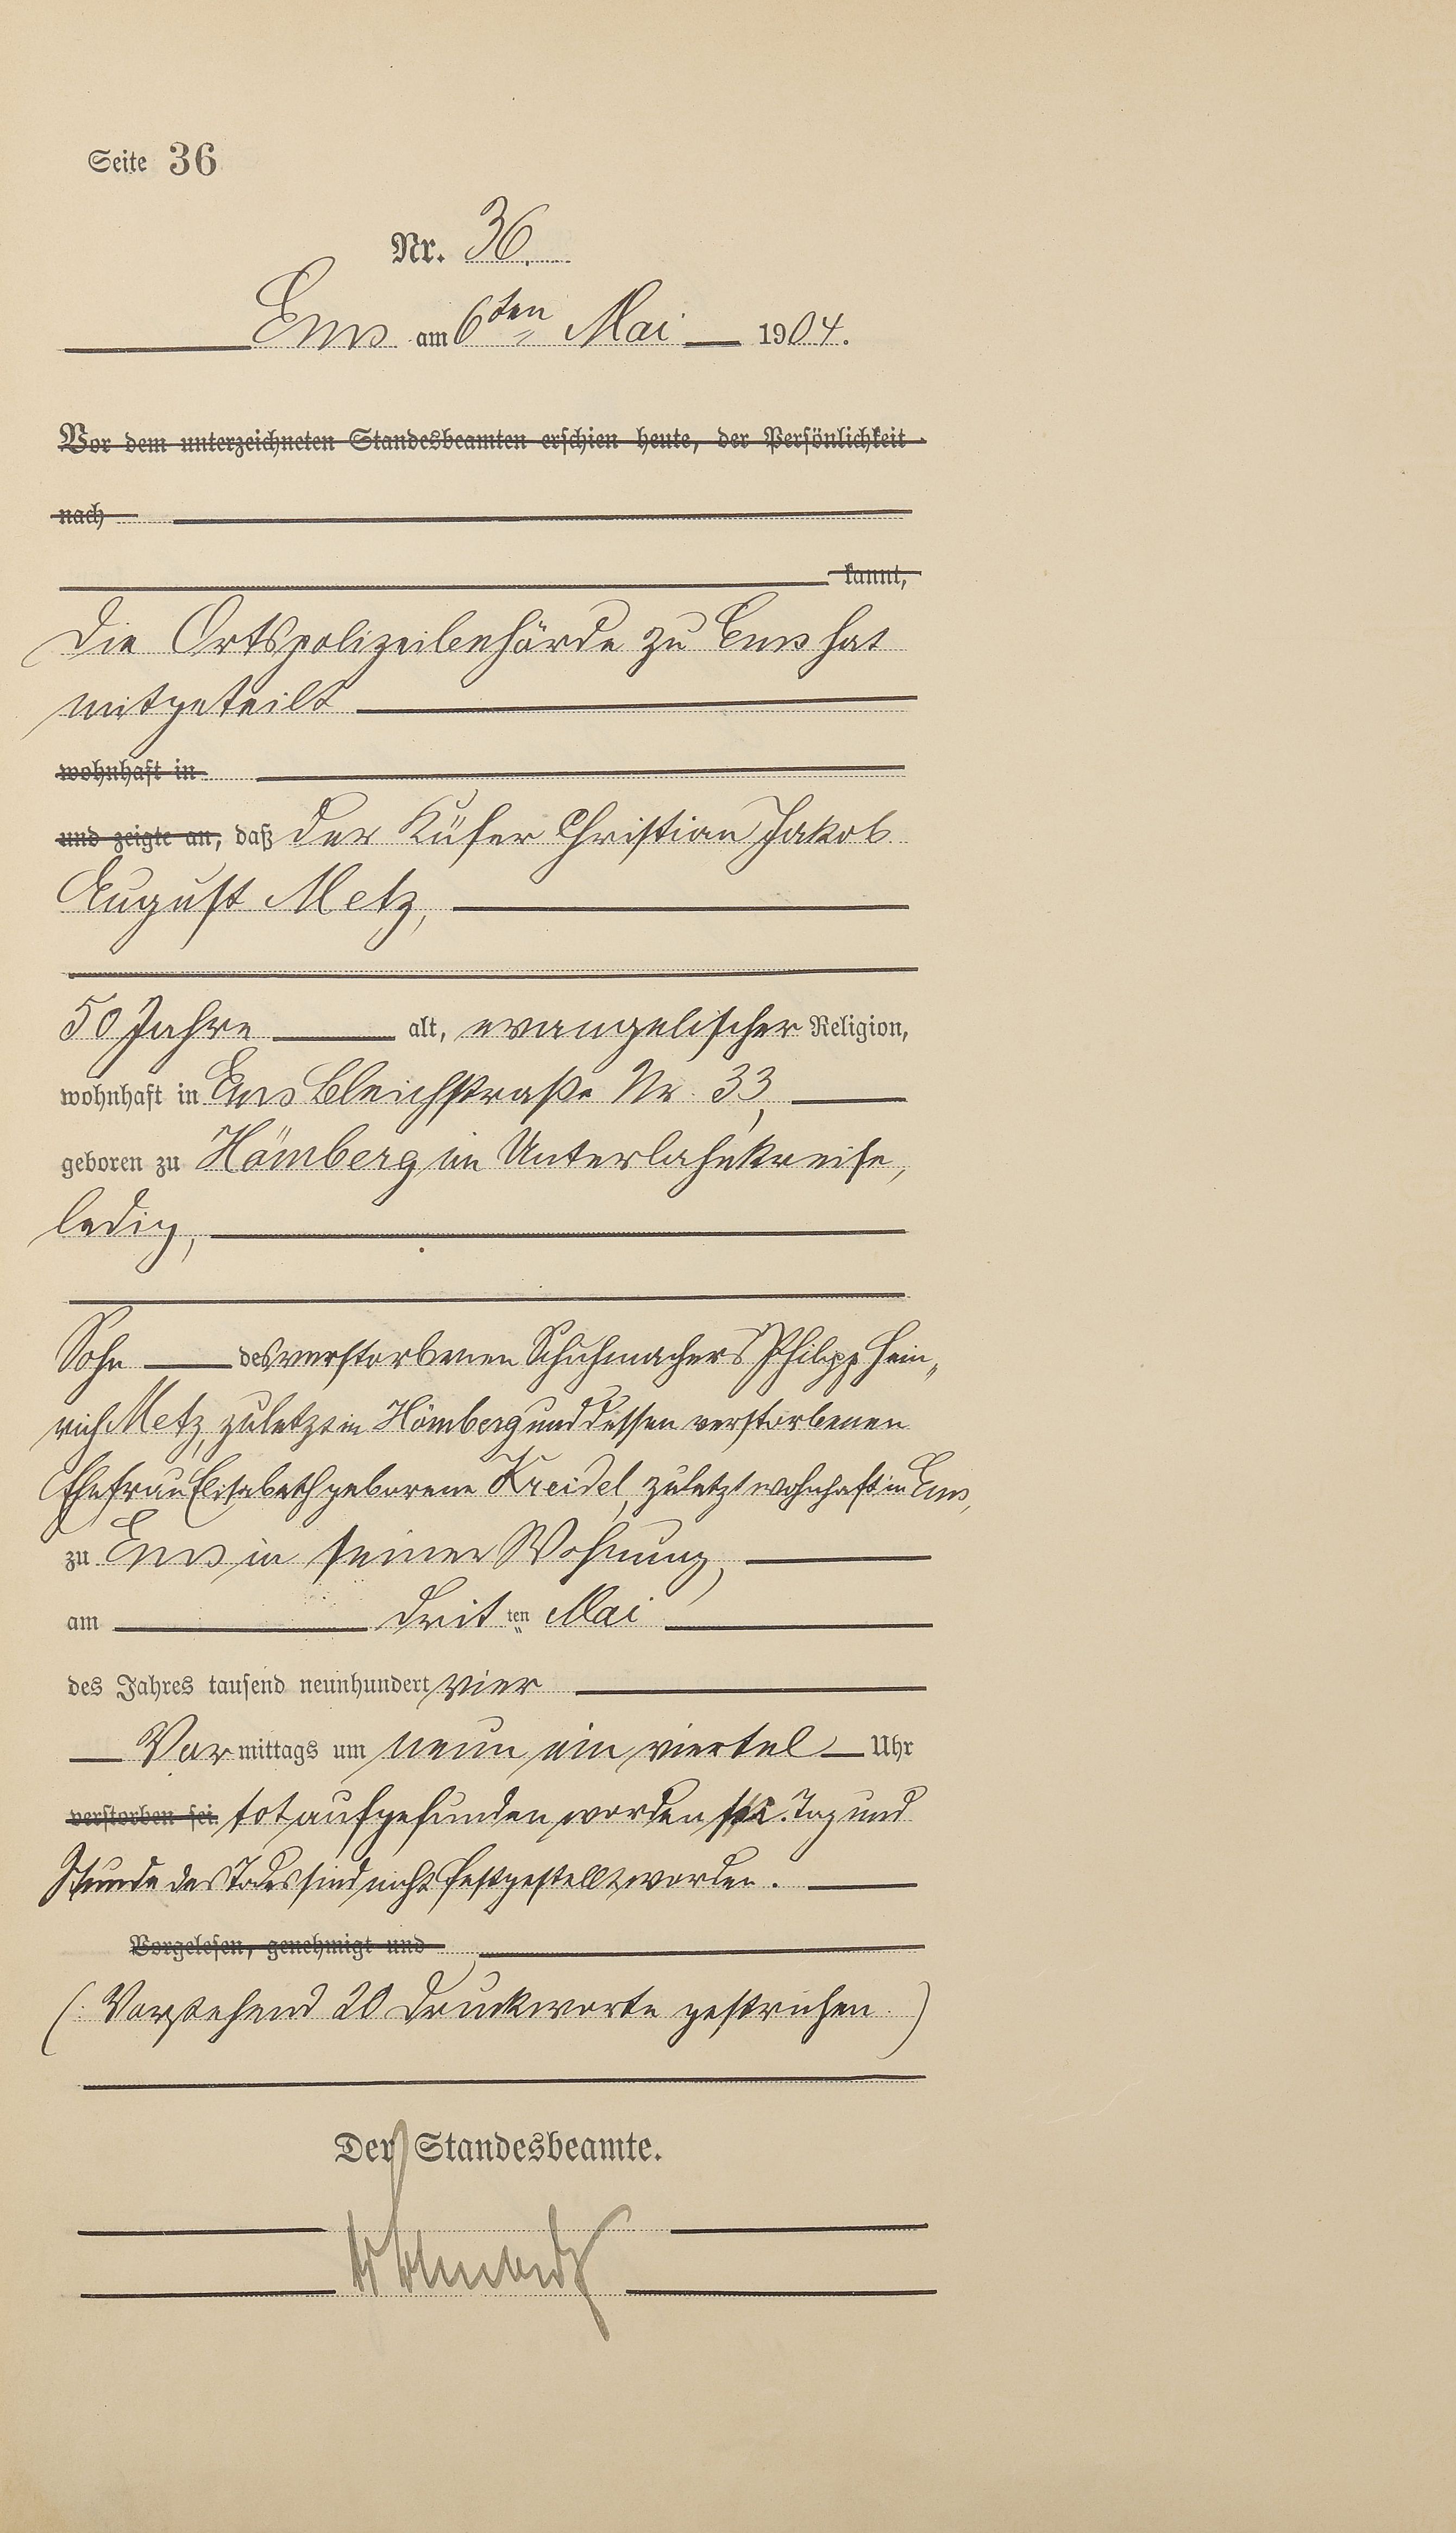 Seite 36
Nr. 36.
Ems am 6ten Mai 1904.
Vor dem unterzeichneten Standesbeamten erschien heute, der Persönlichkeit
nach
kannt,
Die Ortspolizeibehörde zu Ems hat
mitgeteilt
wohnhaft in
und zeigte an, daß der Küfer Christian Jakob
August Metz,
50 Jahre alt, evangelischer Religion,
wohnhaft in Ems Bleichstraße Nr. 33,
geboren zu Hömberg im Unterlahnkreise,
ledig,
Sohn des verstorbenen Schuhmachers Philipp Hein„
rich Metz, zuletzt in Hömberg und dessen verstorbenen
Ehefrau Elisabeth geborene Kreidel, zuletzt wohnhaft in Ems,
zu Ems in seiner Wohnung,
am dritten Mai
des Jahres tausend neunhundert vier
Vormittags um neun ein viertel Uhr
verstorben sei tot aufgefunden worden sei. Tag und
Stunde des Todes sind nicht festgestellt worden.
Vorgelesen, genehmigt und
(: Vorstehend 20 Druckworte gestrichen. )
Der Standesbeamte.